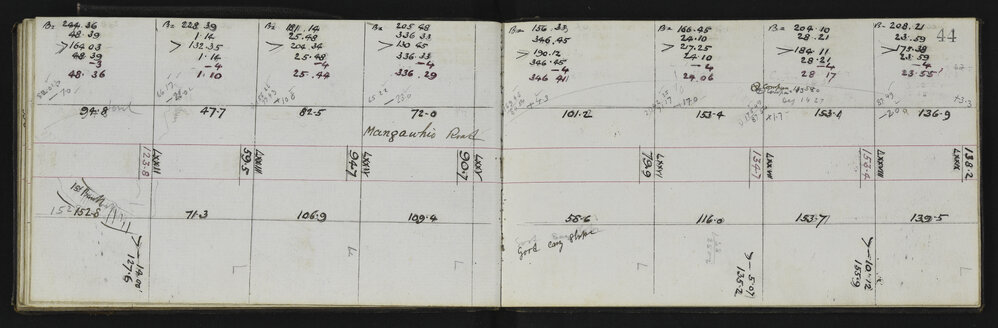 B= 244.36
48.39
> 164.03
48.39
-3
48.36
B= 228.39
1.14
> 132.35
1.14
-4
1.10
B= 181.14
25.48
> 204.34
25.48
-4
25.44
B= 205.48
336.33
> 130.45
336.33
-4
336.29
B= 156.33
346.45
> 190.12
346.45
-4
346.41
B= 166.45
24.10
> 217.25
24.10
-4
24.06
B= 204.10
28.21
> 184.11
28.21
-4
28.17
B= 208.21
23.59
> 175.38
23.59
-4
23.55
44
94.8
47.7
82.5
72.0
101.2
153.4
153.4
136.9
Mangawhio Road
LXXII
123.8
LXXIII
59.5
LXXIV
94.7
LXXV
90.7
LXXVI
79.9
LXXVII
134.7
LXXVIII
153.4
LXXIX
138.2
152.8
71.3
106.9
109.4
58.6
116.0
153.7
139.5
Good easy slope
-14.00
127.6
-5.07
135.2
-10.12
155.9